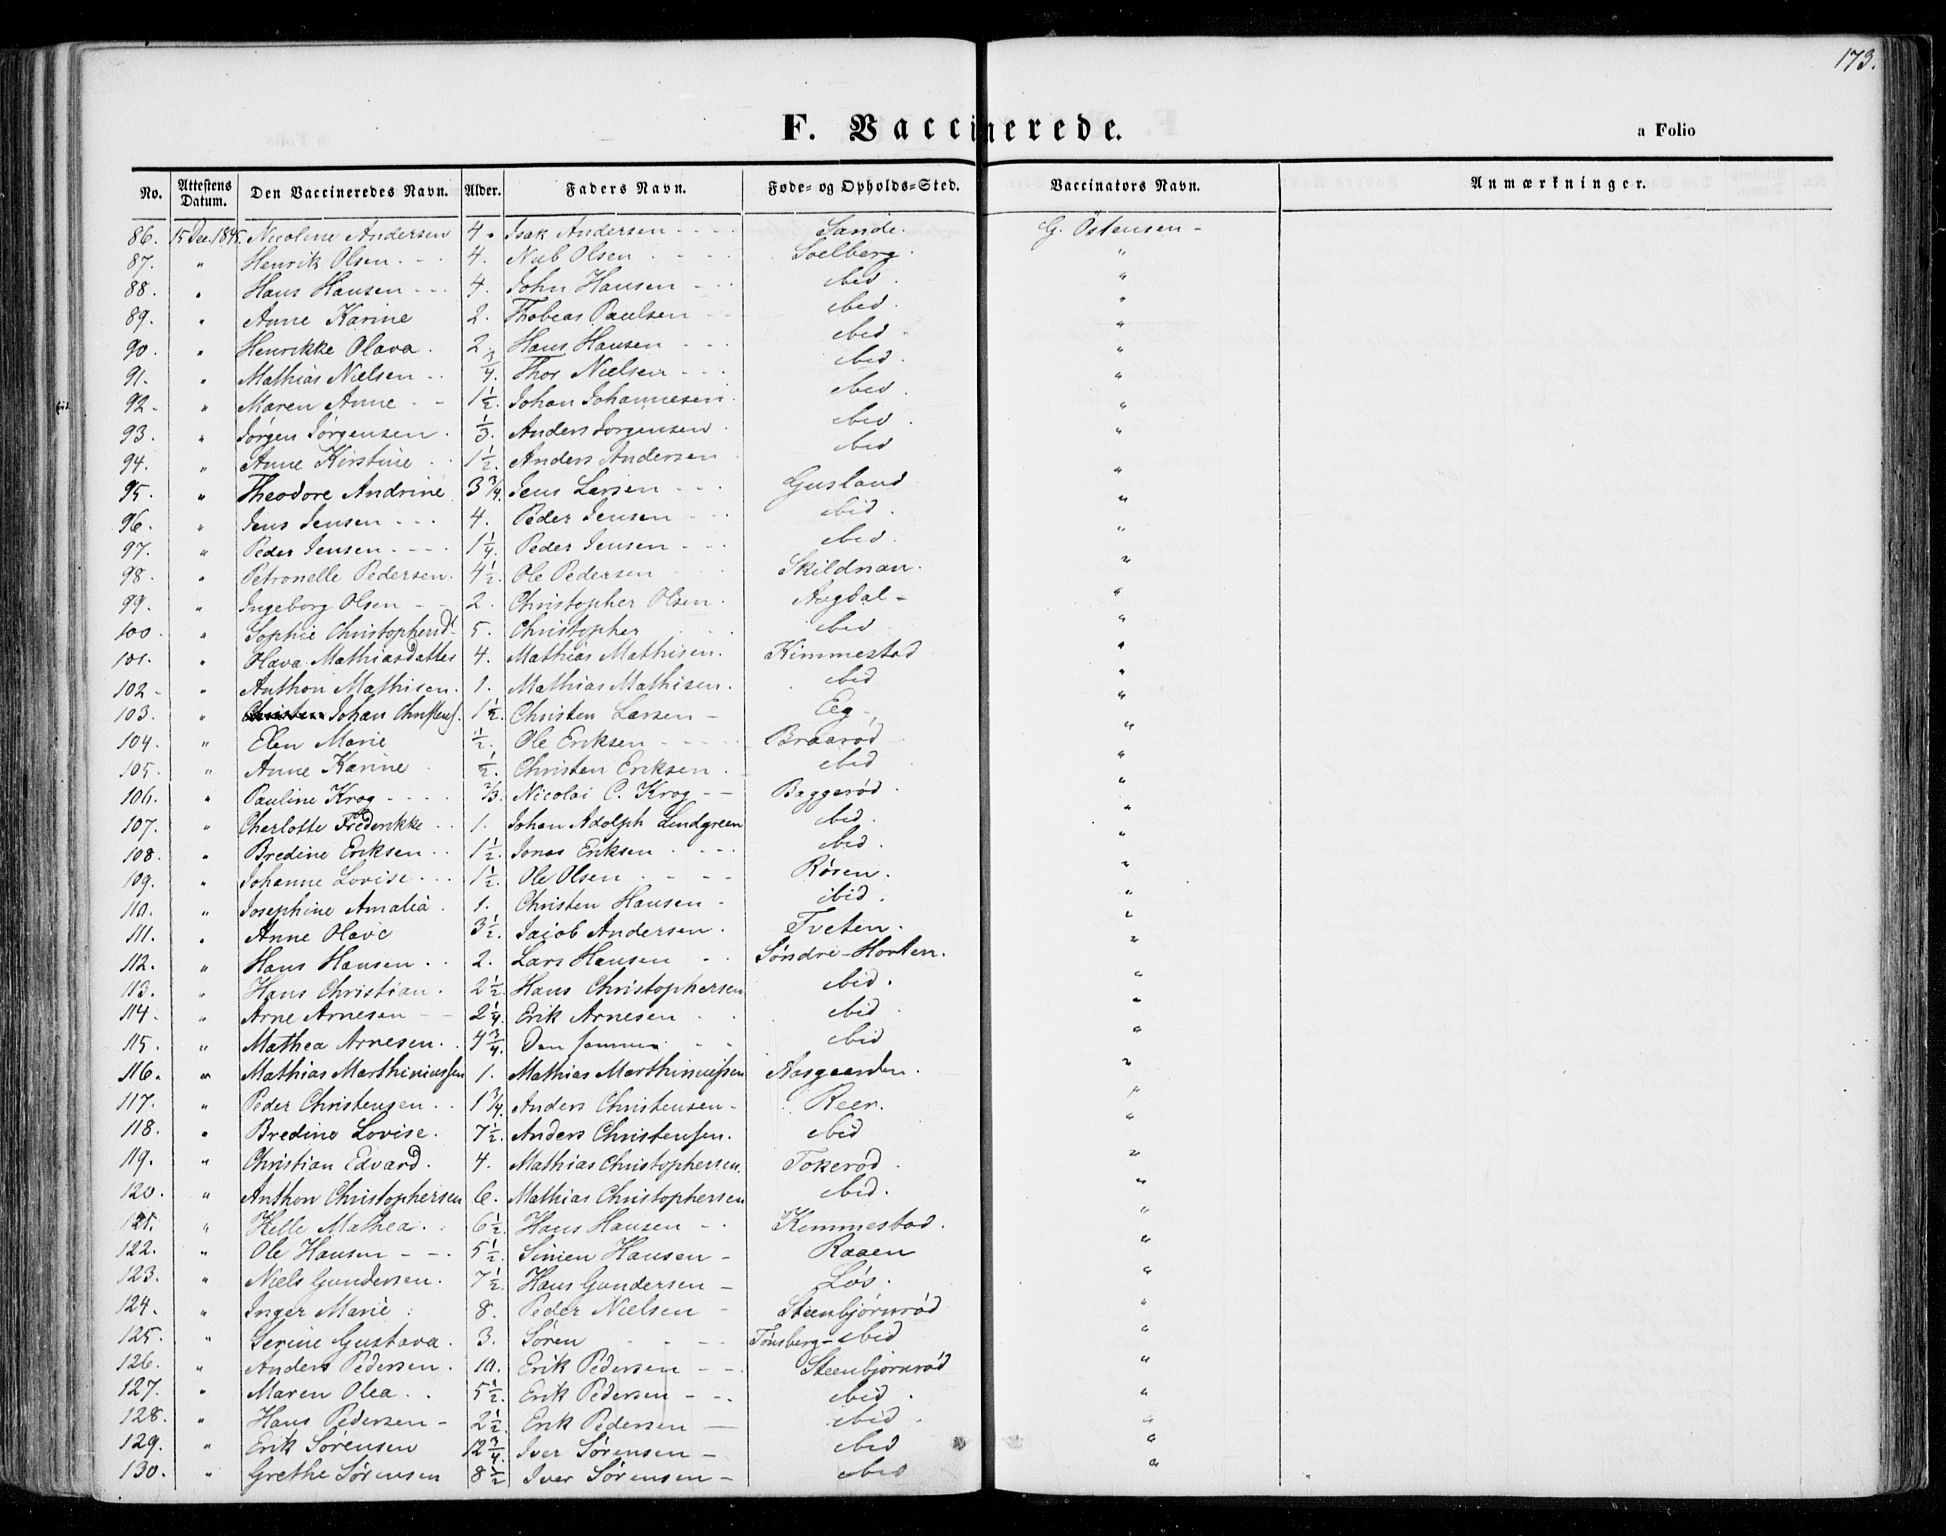 173.
F. Vaccinerede.
a Folio
No. Attestens Datum. Den Vaccineredes Navn. Alder. Faders Navn. Føde- og Opholds-Sted. Vaccinators Navn. Anmærkninger.
86. 15 Dec. 1845. Nicoline Andersen 4. Isak Andersen - - - - Sande. G. Östensen -
87. " Henrik Olsen - - - 4. Olsen - - - - Soelberg. "
88. " Hans Hansen - - - 4. John Hansen - - - ibid. "
89. " Anne Karine 2. Thobias Paulsen - - ibid. "
90. " Henrikke Olava. 2. Hans Hansen - - - ibid - "
91. " Mathias Nielsen - - 3/4. Thor Nielsen - - - ibid. "
92. " Maren Anne - - 1 1/2. Johan Johannesen. ibid. "
93. " Jørgen Jørgensen. 1/3. Anders Jørgensen. ibid. "
94. " Anne Kirstine 1 1/2. Anders Andersen ibid "
95. " Theodore Andrine 3 3/4. Jens Larsen - - - Gusland "
96. " Jens Jensen - - - 4. Peder Jensen - - - ibid. "
97. " Peder Jensen - - - - 1 1/4. Peder Jensen - - - ibid. "
98. " Petronelle Pedersen. 4 1/2. Ole Pedersen Skildnan. "
99. " Ingeborg Olsen - - 2. Christopher Olsen. Augdal - "
100. " Sophie Christophersd. 5. Christopher ibid "
101. " Olava Mathiasdatter 4. Mathias Mathisen. Kimmestad "
102 - " Anthon Mathisen. 1. Mathias Mathisen. ibid "
103. " Christen Johan Christens. 1 1/2. Christen Larsen - Eeg - "
104. " Elen Marie 1/2. Ole Eriksen - - - - Braarød "
105. " Anne Karine 1/2. Christen Eriksen. ibid "
106. " Pauline Krog - - - - 2/3. Nicolai C. Krog - - Baggerød. "
107. " Charlotte Frederikke 1. Johan Adolph Lindgreen ibid. "
108. " Bredine Eriksen - - 1 1/2. Jonas Eriksen - - - - ibid. "
109. " Johanne Lovise - - - 1 1/2. Ole Olsen - - - - Røsen. "
110. " Josephine Amalia. 1. Christen Hansen - ibid. "
111. " Anne Olave 3 1/2. Jacob Andersen. Tveten. "
112. " Hans Hansen. . 2. Lars Hansen - - Søndre-Horten. "
113. " Hans Christian. 2 1/2. Hans Christophersen ibid. "
114. " Arne Arnesen - - 2 1/4. Erik Arnesen - - ibid. "
115. " Mathea Arnesen. . 4 3/4. Den samme - - ibid "
116. " Mathias Marthiniussen 1. Mathias Marthiniussen Aasgaarden. "
117. " Peder Christensen. . 1 3/4. Anders Christensen - Reer. "
118. " Bredine Lovise. 7 1/2. Anders Christensen. ibid "
119. " Christian Edvard. 4. Mathias Christophersen. Tokerød. "
120. " Anthon Christophersen 6. Mathias Christophersen ibid. "
121. " Helle Mathea. . 6 1/2. Hans Hansen - - Kimmestad. "
122. " Ole Hansen - - - 5 1/2. Simen Hansen - Raaen "
123. " Niels Gundersen. 7 1/2. Hans Gundersen - Løs. "
124. " Inger Marie. 8. Peder Nielsen - Steenbjørnrød "
125. " Serine Gustava. 3. Søren - - - Tønsberg - ibid "
126. " Anders Pedersen. 10. Erik Pedersen - - - Steenbjørnrød "
127. " Maren Olea. . 5 1/2. Erik Pedersen - - - ibid. "
128. " Hans Pedersen - 2 1/2. Erik Pedersen - ibid. "
129. " Erik Sørensen 12 3/4. Iver Sørensen - ibid "
130. " Grethe Sørensen 8 1/2 Iver Sørensen - ibid "